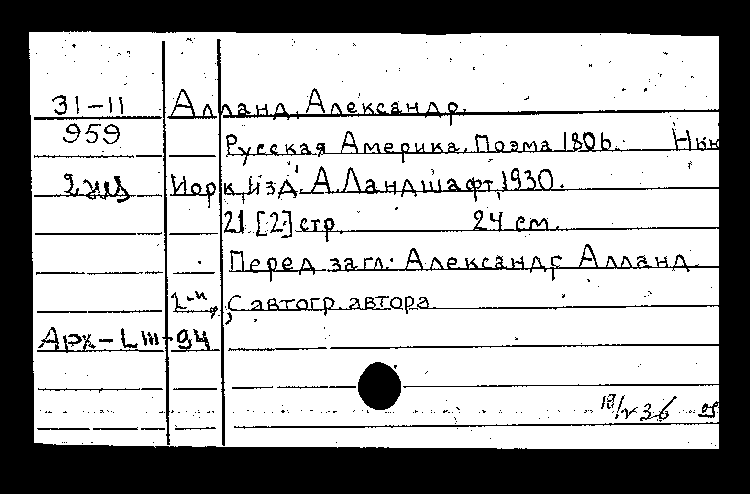 31-11 Алланд, Александр.
959 Русская Америка. Поэма 1806. Нью
2 экз Иорк, Изд. А. Ландшафт, 1930.
21 [2] стр. 24 см.
Перед загл.: Александр Алланд
С автогр. автора
94
36